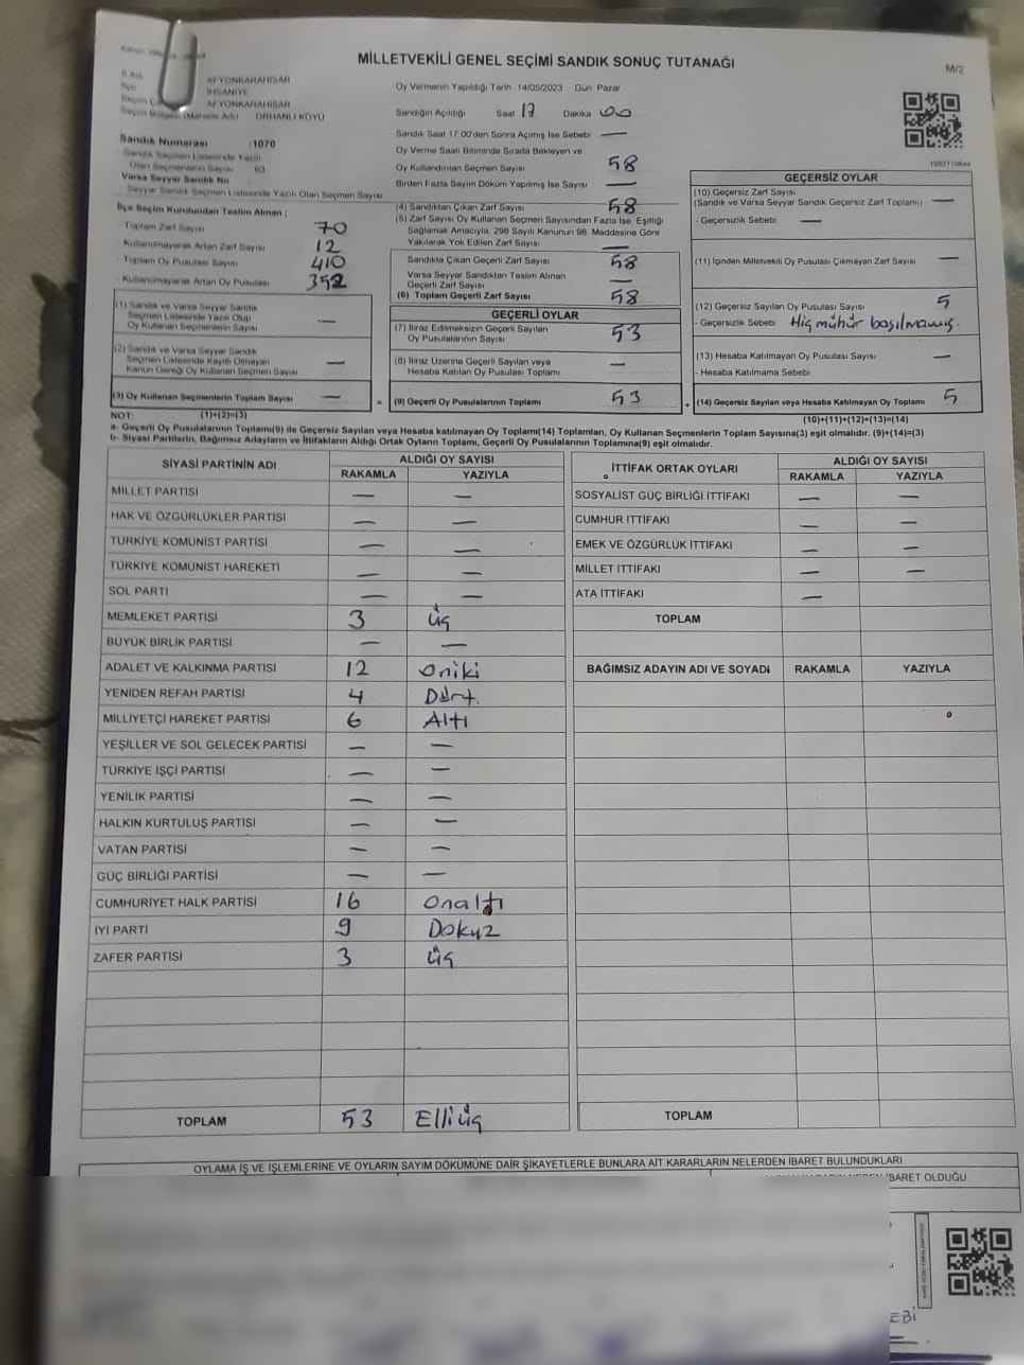 MİLLETVEKİLİ GENEL SEÇİMİ SANDIK SONUÇ TUTANAĞI
M/2
AFYONKARAHİSAR
İHSANİYE
AFYONKARAHİSAR
ORHANLI KÖYÜ
Sandık Numarası :1070
Sandık Seçmen Listesinde Yazılı
Olan Seçmenlerin Sayısı 63
Varsa Seyyar Sandık No
Seyyar Sandık Seçmen Listesinde Yazılı Olan Seçmen Sayısı
İlçe Seçim Kurulundan Teslim Alınan ;
Toplam Zarf Sayısı 70
Kullanılmayarak Artan Zarf Sayısı 12
Toplam Oy Pusulası Sayısı 410
Kullanılmayarak Artan Oy Pusulası 352
(1) Sandık ve Varsa Seyyar Sandık
Seçmen Listesinde Yazılı Olup
Oy Kullanan Seçmenlerin Sayısı —
(2) Sandık ve Varsa Seyyar Sandık
Seçmen Listesinde Kayıtlı Olmayan
Kanun Gereği Oy Kullanan Seçmen Sayısı —
(3) Oy Kullanan Seçmenlerin Toplam Sayısı —
(1)+(2)=(3)
Oy Vermenin Yapıldığı Tarih :14/05/2023 Gün: Pazar
Sandığın Açıldığı Saat 17 Dakika 00
Sandık Saat 17:00'den Sonra Açılmış İse Sebebi —
Oy Verme Saati Bitiminde Sırada Bekleyen ve
Oy Kullandırılan Seçmen Sayısı 58
Birden Fazla Sayım Döküm Yapılmış İse Sayısı —
(4) Sandıktan Çıkan Zarf Sayısı 58
(5) Zarf Sayısı Oy Kullanan Seçmen Sayısından Fazla İse, Eşitliği
Sağlamak Amacıyla, 298 Sayılı Kanunun 98. Maddesine Göre
Yakılarak Yok Edilen Zarf Sayısı —
Sandıkta Çıkan Geçerli Zarf Sayısı 58
Varsa Seyyar Sandıktan Teslim Alınan
Geçerli Zarf Sayısı —
(6) Toplam Geçerli Zarf Sayısı 58
GEÇERLİ OYLAR
(7) İtiraz Edilmeksizin Geçerli Sayılan
Oy Pusulalarının Sayısı 53
(8) İtiraz Üzerine Geçerli Sayılan veya
Hesaba Katılan Oy Pusulası Toplamı —
(9) Geçerli Oy Pusulalarının Toplamı 53
GEÇERSİZ OYLAR
(10) Geçersiz Zarf Sayısı
(Sandık ve Varsa Seyyar Sandık Geçersiz Zarf Toplamı) —
- Geçersizlik Sebebi —
(11) İçinden Milletvekili Oy Pusulası Çıkmayan Zarf Sayısı —
(12) Geçersiz Sayılan Oy Pusulası Sayısı 5
- Geçersizlik Sebebi Hiç mühür basılmamış.
(13) Hesaba Katılmayan Oy Pusulası Sayısı —
- Hesaba Katılmama Sebebi
(14) Geçersiz Sayılan veya Hesaba Katılmayan Oy Toplamı 5
(10)+(11)+(12)+(13)=(14)
NOT:
a- Geçerli Oy Pusulalarının Toplamı(9) ile Geçersiz Sayılan veya Hesaba katılmayan Oy Toplamı(14) Toplamları, Oy Kullanan Seçmenlerin Toplam Sayısına(3) eşit olmalıdır. (9)+(14)=(3)
b- Siyasi Partilerin, Bağımsız Adayların ve İttifakların Aldığı Ortak Oyların Toplamı, Geçerli Oy Pusulalarının Toplamına(9) eşit olmalıdır.
SİYASİ PARTİNİN ADI ALDIĞI OY SAYISI
RAKAMLA YAZIYLA
MİLLET PARTİSİ — —
HAK VE ÖZGÜRLÜKLER PARTİSİ — —
TÜRKİYE KOMÜNİST PARTİSİ — —
TÜRKİYE KOMÜNİST HAREKETİ — —
SOL PARTİ — —
MEMLEKET PARTİSİ 3 üç
BÜYÜK BİRLİK PARTİSİ — —
ADALET VE KALKINMA PARTİSİ 12 oniki
YENİDEN REFAH PARTİSİ 4 Dört.
MİLLİYETÇİ HAREKET PARTİSİ 6 Altı
YEŞİLLER VE SOL GELECEK PARTİSİ — —
TÜRKİYE İŞÇİ PARTİSİ — —
YENİLİK PARTİSİ — —
HALKIN KURTULUŞ PARTİSİ — —
VATAN PARTİSİ — —
GÜÇ BİRLİĞİ PARTİSİ — —
CUMHURİYET HALK PARTİSİ 16 onaltı
İYİ PARTİ 9 Dokuz
ZAFER PARTİSİ 3 üç
TOPLAM 53 Elliüç
İTTİFAK ORTAK OYLARI ALDIĞI OY SAYISI
RAKAMLA YAZIYLA
SOSYALİST GÜÇ BİRLİĞİ İTTİFAKI — —
CUMHUR İTTİFAKI — —
EMEK VE ÖZGÜRLÜK İTTİFAKI — —
MİLLET İTTİFAKI — —
ATA İTTİFAKI —
TOPLAM
BAĞIMSIZ ADAYIN ADI VE SOYADI RAKAMLA YAZIYLA
TOPLAM
OYLAMA İŞ VE İŞLEMLERİNE VE OYLARIN SAYIM DÖKÜMÜNE DAİR ŞİKAYETLERLE BUNLARA AİT KARARLARIN NELERDEN İBARET BULUNDUKLARI
İBARET OLDUĞU
EBİ